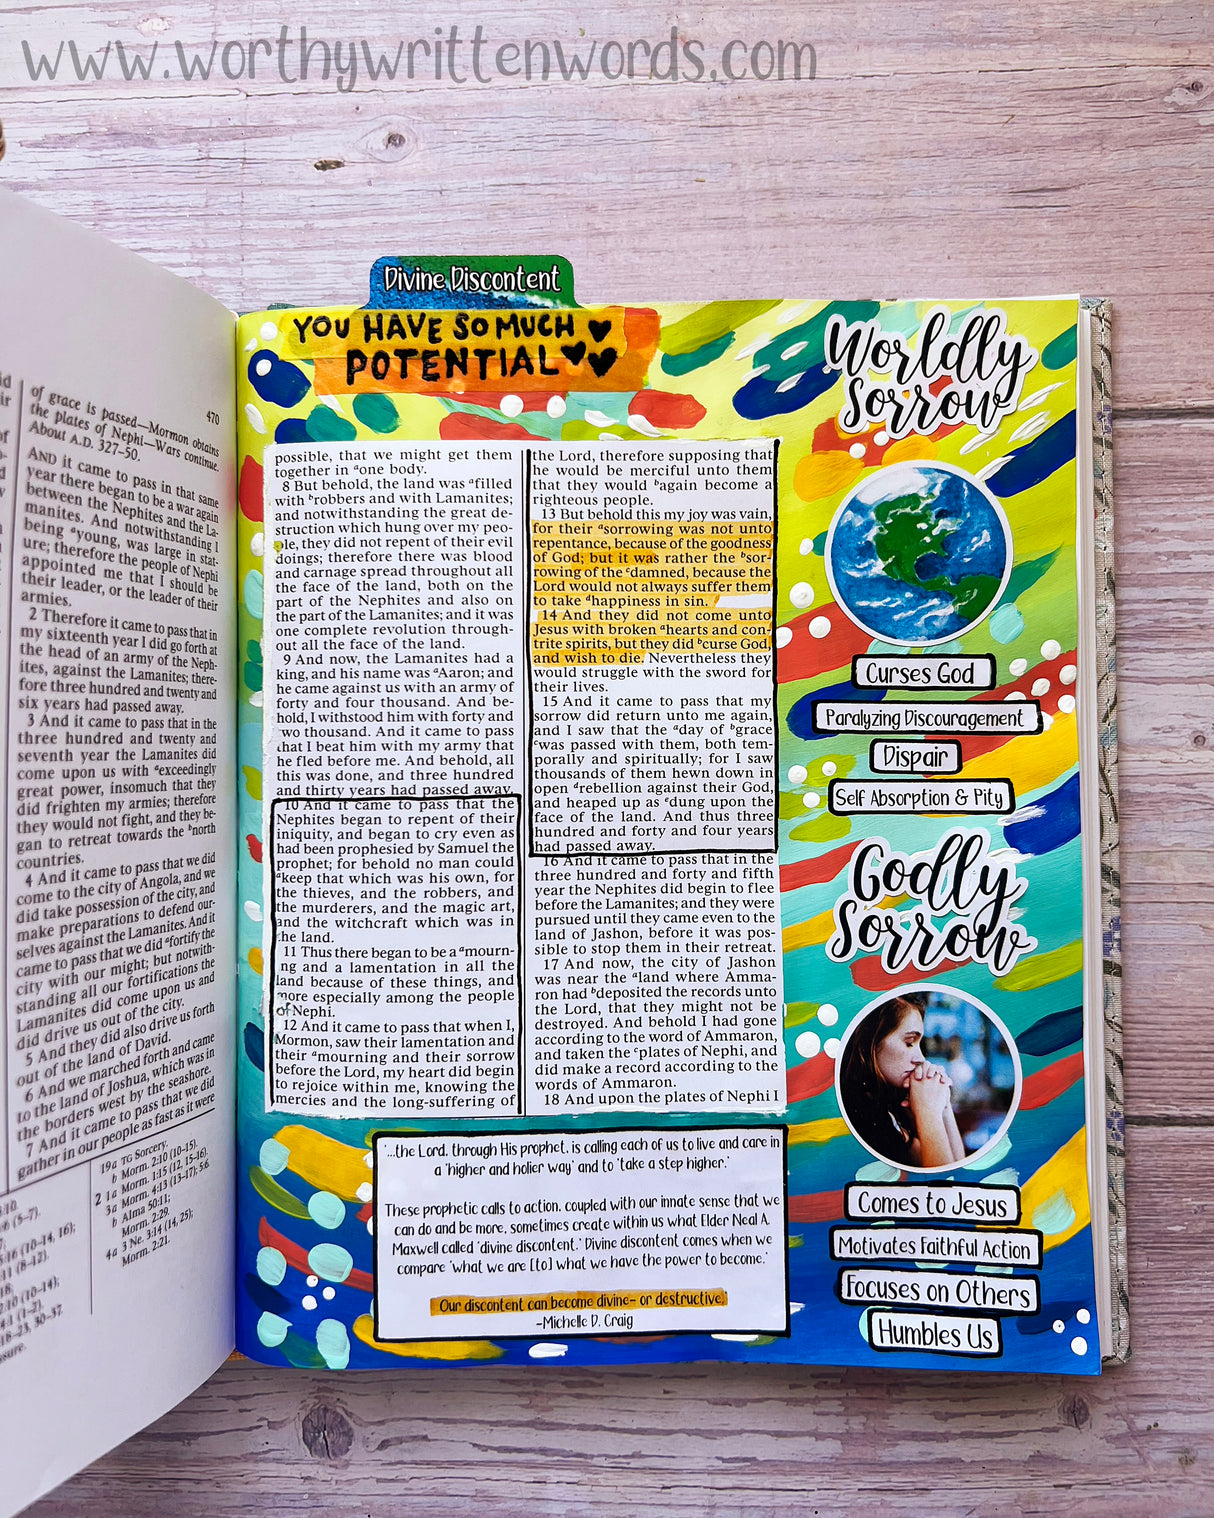 www.worthywrittenwords.com
of grace is passed—Mormon obtains
the plates of Nephi—Wars continue.
About A.D. 327–50.
470
AND it came to pass in that same
year there began to be a war again
between the Nephites and the La-
manites. And notwithstanding I
being ᵃyoung, was large in stat-
ure; therefore the people of Nephi
appointed me that I should be
their leader, or the leader of their
armies.
2 Therefore it came to pass that in
my sixteenth year I did go forth at
the head of an army of the Neph-
ites, against the Lamanites; there-
fore three hundred and twenty and
six years had passed away.
3 And it came to pass that in the
three hundred and twenty and
seventh year the Lamanites did
come upon us with ᵃexceedingly
great power, insomuch that they
did frighten my armies; therefore
they would not fight, and they be-
gan to retreat towards the ᵇnorth
countries.
4 And it came to pass that we did
come to the city of Angola, and we
did take possession of the city, and
make preparations to defend our-
selves against the Lamanites. And it
came to pass that we did ᵃfortify the
city with our might; but notwith-
standing all our fortifications the
Lamanites did come upon us and
did drive us out of the city.
5 And they did also drive us forth
out of the land of David.
6 And we marched forth and came
to the land of Joshua, which was in
the borders west by the seashore.
7 And it came to pass that we did
gather in our people as fast as it were
19a TG Sorcery.
b Morm. 2:10 (10–15).
2 1a Morm. 1:15 (12, 15–16).
3a Morm. 4:13 (13–17); 5:6.
b Alma 50:11;
Morm. 2:29.
4a 3 Ne. 3:14 (14, 25);
Morm. 2:21.
Divine Discontent
YOU HAVE SO MUCH
POTENTIAL
possible, that we might get them
together in ᵃone body.
8 But behold, the land was ᵃfilled
with ᵇrobbers and with Lamanites;
and notwithstanding the great de-
struction which hung over my peo-
ple, they did not repent of their evil
doings; therefore there was blood
and carnage spread throughout all
the face of the land, both on the
part of the Nephites and also on
the part of the Lamanites; and it was
one complete revolution through-
out all the face of the land.
9 And now, the Lamanites had a
king, and his name was ᵃAaron; and
he came against us with an army of
forty and four thousand. And be-
hold, I withstood him with forty and
two thousand. And it came to pass
that I beat him with my army that
he fled before me. And behold, all
this was done, and three hundred
and thirty years had passed away.
10 And it came to pass that the
Nephites began to repent of their
iniquity, and began to cry even as
had been prophesied by Samuel the
prophet; for behold no man could
ᵃkeep that which was his own, for
the thieves, and the robbers, and
the murderers, and the magic art,
and the witchcraft which was in
the land.
11 Thus there began to be a ᵃmourn-
ing and a lamentation in all the
land because of these things, and
more especially among the people
of Nephi.
12 And it came to pass that when I,
Mormon, saw their lamentation and
their ᵃmourning and their sorrow
before the Lord, my heart did begin
to rejoice within me, knowing the
mercies and the long-suffering of
the Lord, therefore supposing that
he would be merciful unto them
that they would ᵇagain become a
righteous people.
13 But behold this my joy was vain,
for their ᵃsorrowing was not unto
repentance, because of the goodness
of God; but it was rather the ᵇsor-
rowing of the ᶜdamned, because the
Lord would not always suffer them
to take ᵈhappiness in sin.
14 And they did not come unto
Jesus with broken ᵃhearts and con-
trite spirits, but they did ᵇcurse God,
and wish to die. Nevertheless they
would struggle with the sword for
their lives.
15 And it came to pass that my
sorrow did return unto me again,
and I saw that the ᵃday of ᵇgrace
ᶜwas passed with them, both tem-
porally and spiritually; for I saw
thousands of them hewn down in
open ᵈrebellion against their God,
and heaped up as ᵉdung upon the
face of the land. And thus three
hundred and forty and four years
had passed away.
16 And it came to pass that in the
three hundred and forty and fifth
year the Nephites did begin to flee
before the Lamanites; and they were
pursued until they came even to the
land of Jashon, before it was pos-
sible to stop them in their retreat.
17 And now, the city of Jashon
was near the ᵃland where Amma-
ron had ᵇdeposited the records unto
the Lord, that they might not be
destroyed. And behold I had gone
according to the word of Ammaron,
and taken the ᶜplates of Nephi, and
did make a record according to the
words of Ammaron.
18 And upon the plates of Nephi I
"...the Lord, through His prophet, is calling each of us to live and care in
a 'higher and holier way' and to 'take a step higher.'
These prophetic calls to action, coupled with our innate sense that we
can do and be more, sometimes create within us what Elder Neal A.
Maxwell called 'divine discontent.' Divine discontent comes when we
compare 'what we are [to] what we have the power to become.'
Our discontent can become divine- or destructive."
-Michelle D. Craig
Worldly
Sorrow
Curses God
Paralyzing Discouragement
Dispair
Self Absorption & Pity
Godly
Sorrow
Comes to Jesus
Motivates Faithful Action
Focuses on Others
Humbles Us